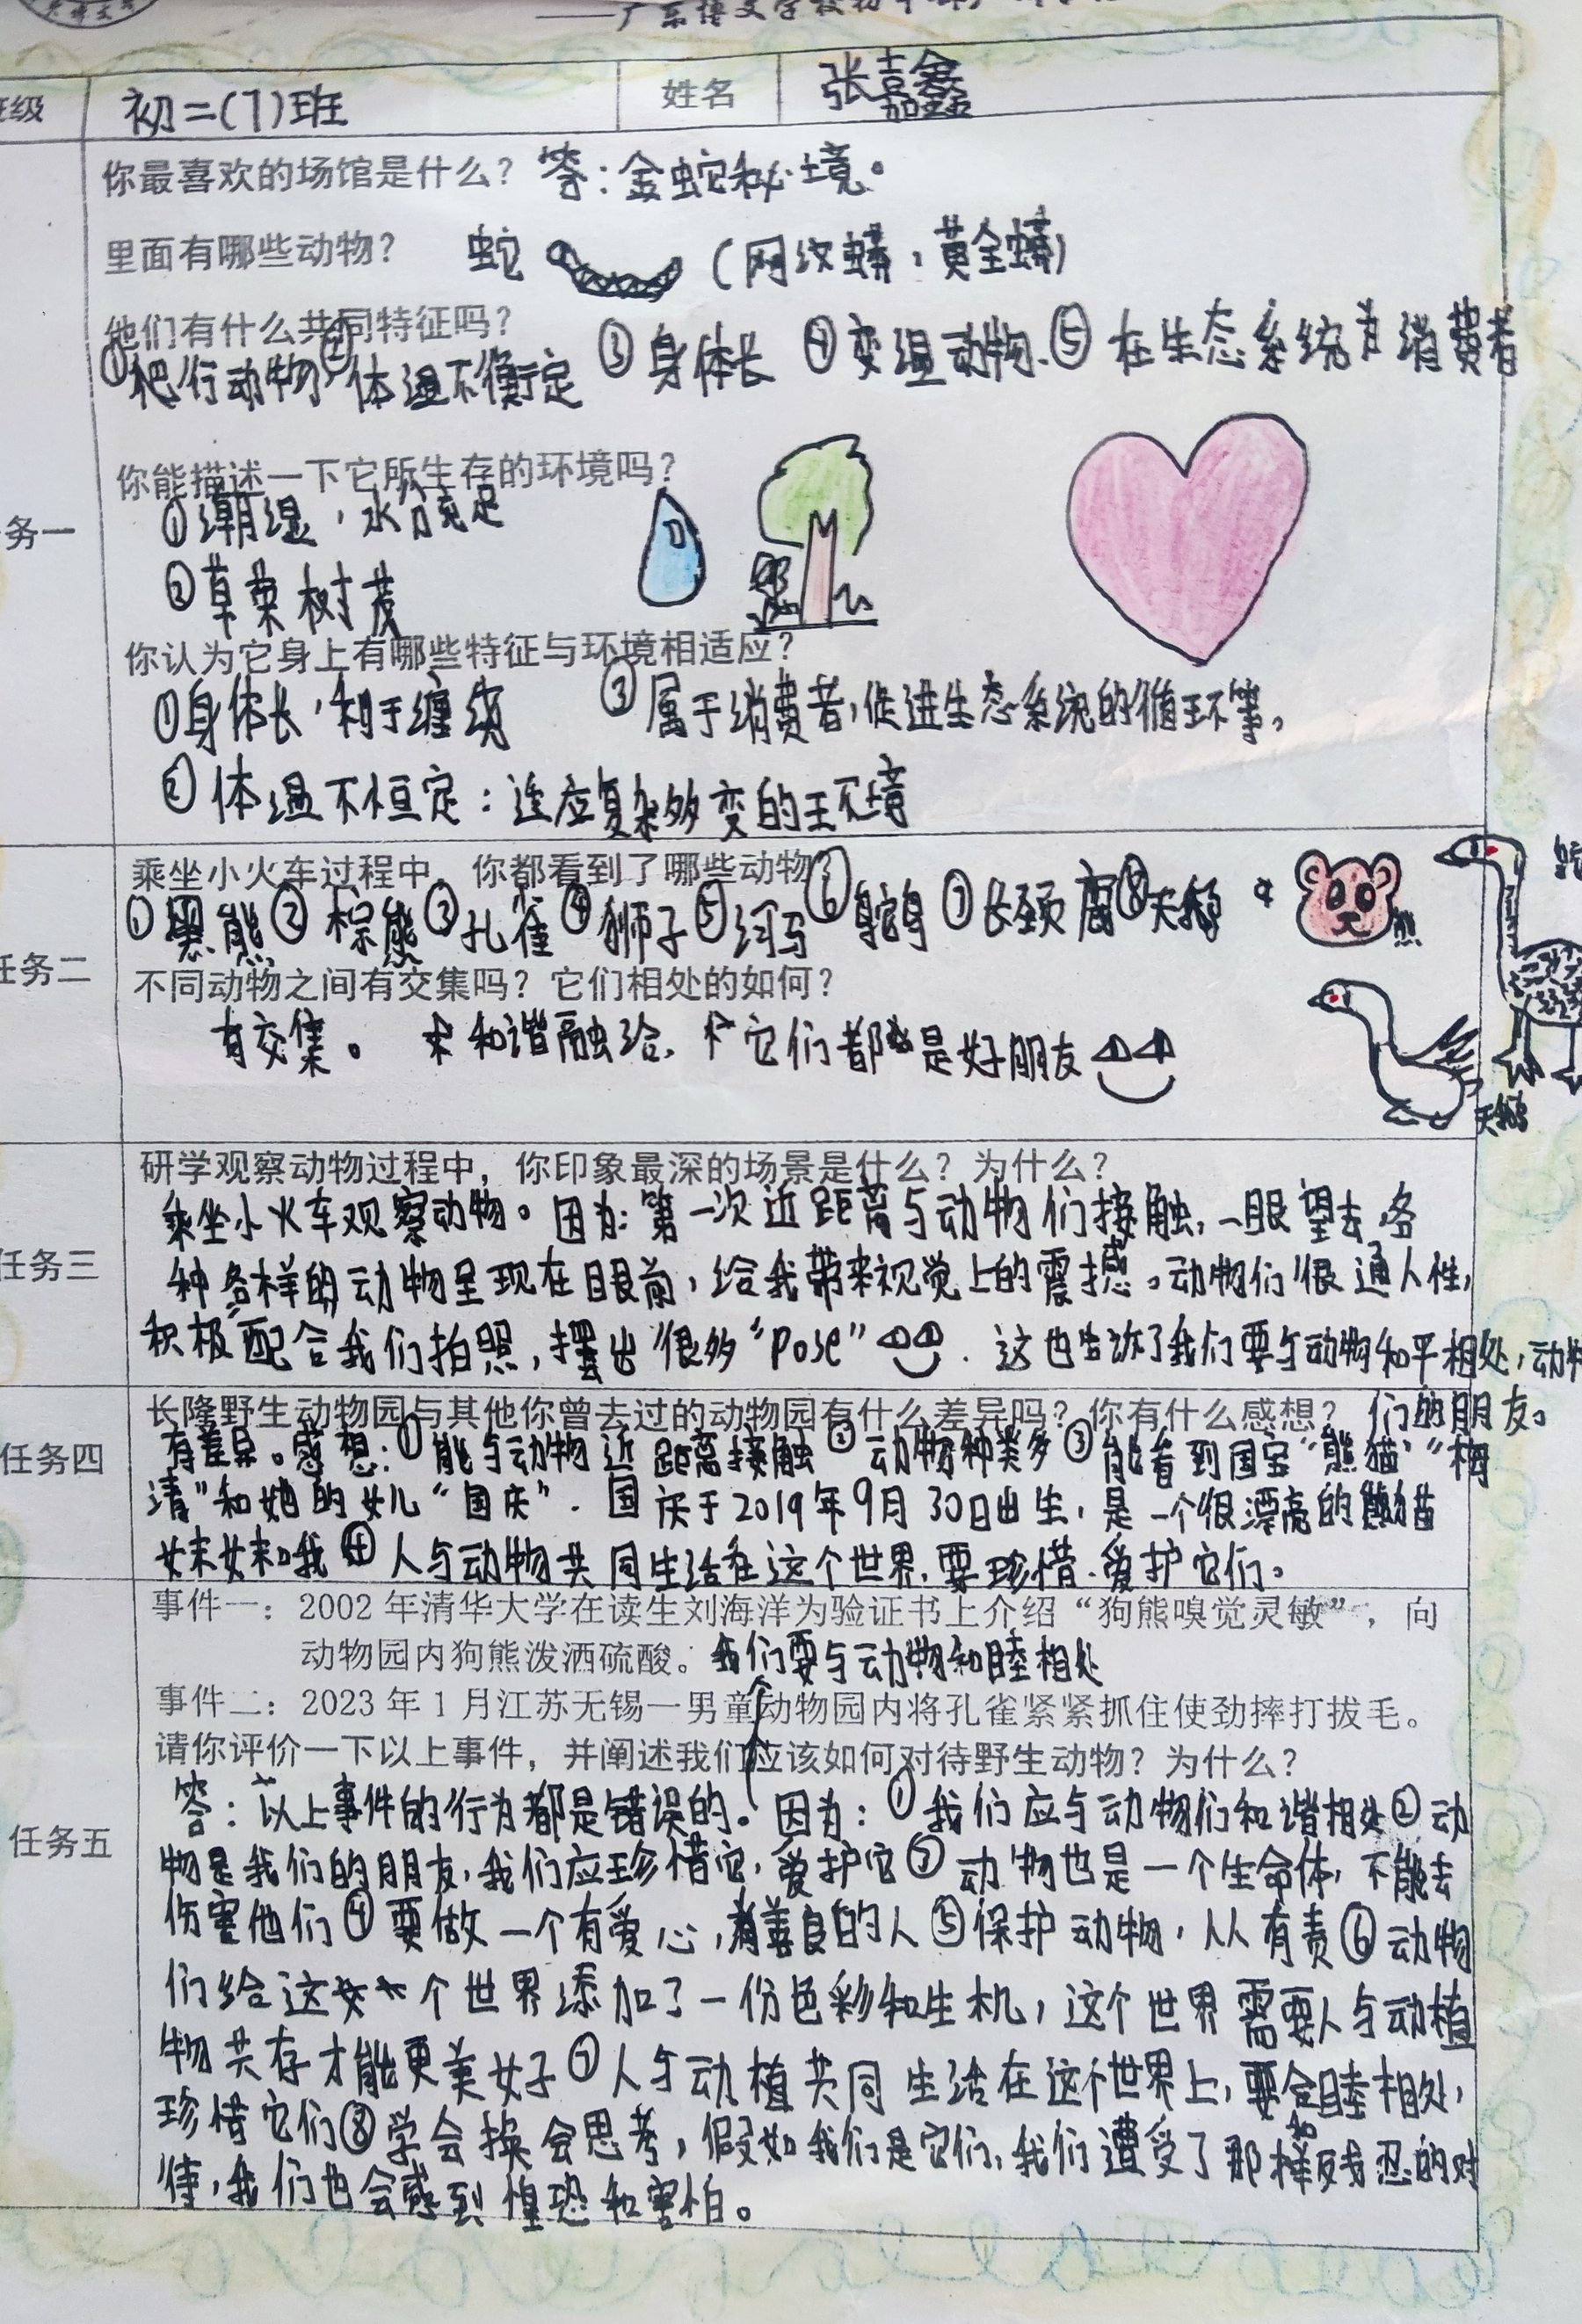 初二(7)班 姓名 张嘉鑫
你最喜欢的场馆是什么？ 答：金蛇秘境。
里面有哪些动物？ 蛇 (网纹蟒，黄金蟒)
他们有什么共同特征吗？
①爬行动物 ②体温不衡定 ③身体长 ④变温动物 ⑤在生态系统为消费者
你能描述一下它所生存的环境吗？
①潮湿，水分充足
务一
②草菜树茂
你认为它身上有哪些特征与环境相适应？
①身体长，利于缠绕 ③属于消费者，促进生态系统的循环等。
②体温不恒定：适应复杂多变的环境
乘坐小火车过程中，你都看到了哪些动物？
①黑熊 ②棕熊 ③孔雀 ④狮子 ⑤河马 ⑥ ⑦长颈鹿 ⑧天鹅 熊
任务二
不同动物之间有交集吗？它们相处的如何？
有交集。 和谐融洽，它们都是好朋友
天鹅
研学观察动物过程中，你印象最深的场景是什么？为什么？
乘坐小火车观察动物。因为：第一次近距离与动物们接触，一眼望去，各
任务三
种各样的动物呈现在眼前，给我带来视觉上的震撼。动物们很通人性，
积极配合我们拍照，摆出很多“pose” . 这也告诉了我们要与动物和平相处，动物
长隆野生动物园与其他你曾去过的动物园有什么差异吗？你有什么感想？ 们的朋友。
任务四
有差异。感想：①能与动物近距离接触 ②动物种类多 ③能看到国宝“熊猫”“梅
清”和她的女儿“国庆”. 国庆于2019年9月30日出生，是一个很漂亮的熊猫
妹妹哦 ④人与动物共同生活在这个世界，要珍惜、爱护它们。
事件一：2002年清华大学在读生刘海洋为验证书上介绍“狗熊嗅觉灵敏”，向
动物园内狗熊泼洒硫酸。 我们要与动物和睦相处
事件二：2023年1月江苏无锡一男童动物园内将孔雀紧紧抓住使劲摔打拔毛。
请你评价一下以上事件，并阐述我们应该如何对待野生动物？为什么？
答：以上事件的行为都是错误的。因为：①我们应与动物们和谐相处 ②动
任务五
物是我们的朋友，我们应珍惜它，爱护它 ③动物也是一个生命体，不能去
伤害他们 ④要做一个有爱心，有善良的人 ⑤保护动物，人人有责 ⑥动物
们给这个世界添加了一份色彩和生机，这个世界需要人与动植
物共存才能更美好 ⑦人与动植共同生活在这个世界上，要和睦相处，
珍惜它们 ⑧学会换会思考，假如我们是它们，我们遭受了那样残忍的对
待，我们也会感到惶恐和害怕。